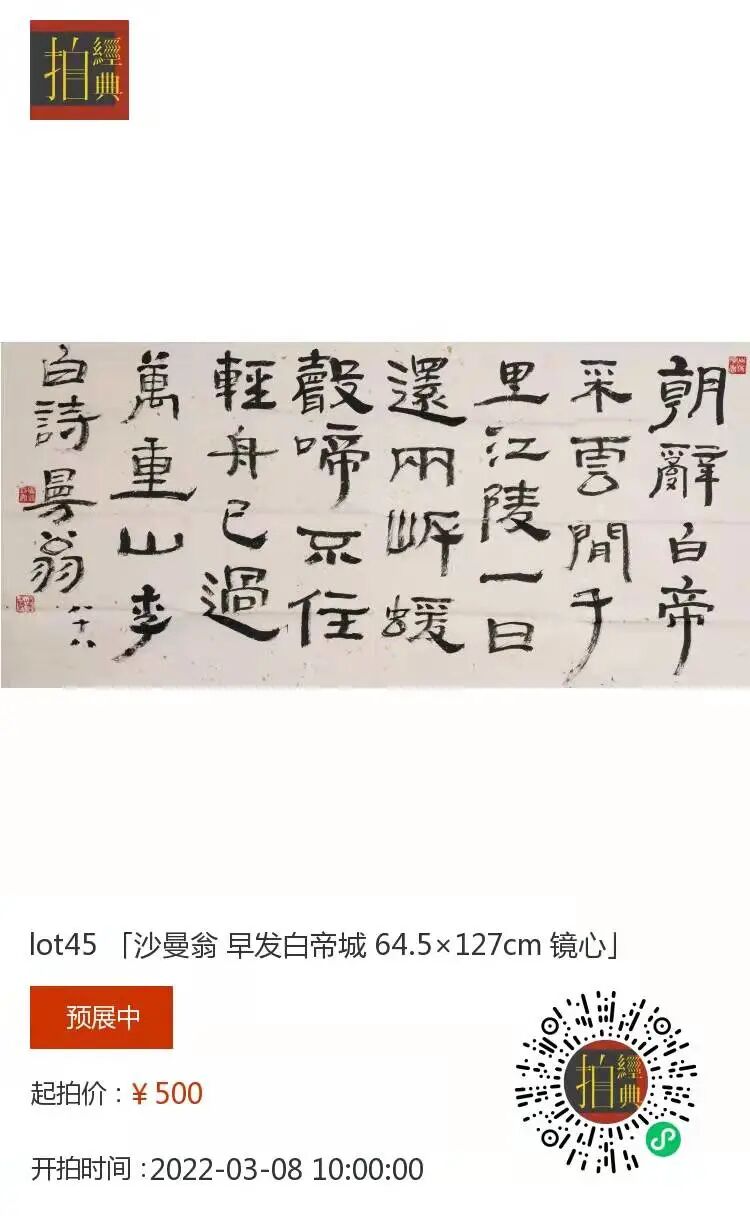 拍
經典
朝辭白帝
采雲閒千
里江陵一日
還兩岸蝯
聲啼不住
輕舟已過
萬重山李
白詩曼翁
八十八
lot45 「沙曼翁 早发白帝城 64.5×127cm 镜心」
预展中
起拍价：¥ 500
开拍时间：2022-03-08 10:00:00
拍
經典